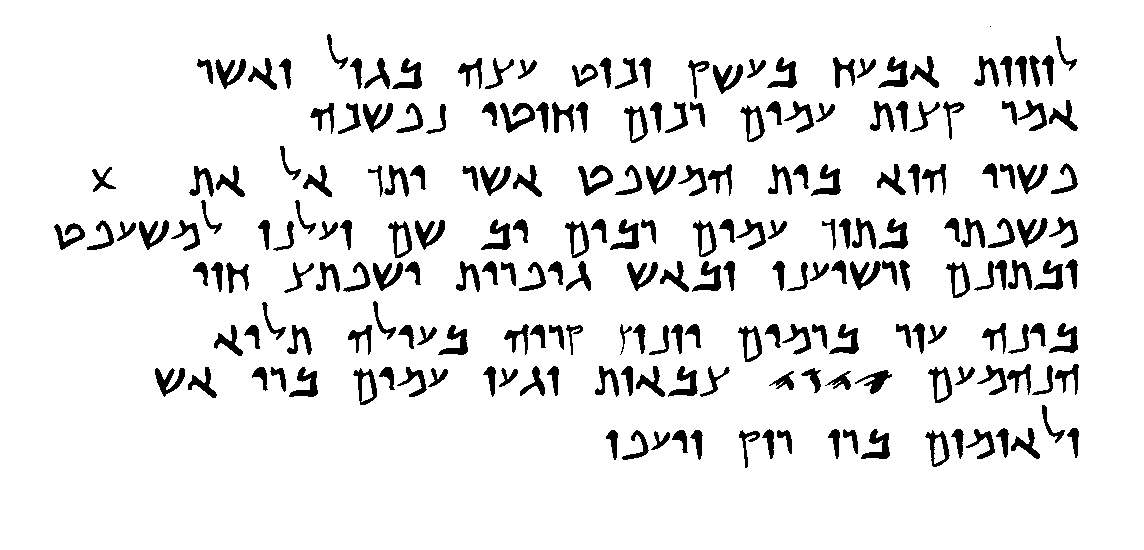 לוזוות אבמעא בעשק ונוט עצה בגול ואשר
אמר קצות עמים רבים וחוטי נפשנה
פשרו הוא בית המשפט אשר יתן אל את X
משפתי בתוך עמים רבים ומ שם ועלנו למשעפט
ובתונם ורשיענו ובאש גיפרית ישפתצ אוי
בונה עיר בדמים ויונן קריה בעולה תליא
הנהמעם 𐤉𐤄𐤅𐤄 צבאות וגעו עמים בדי אש
ולאומים בדו ריק וועפו